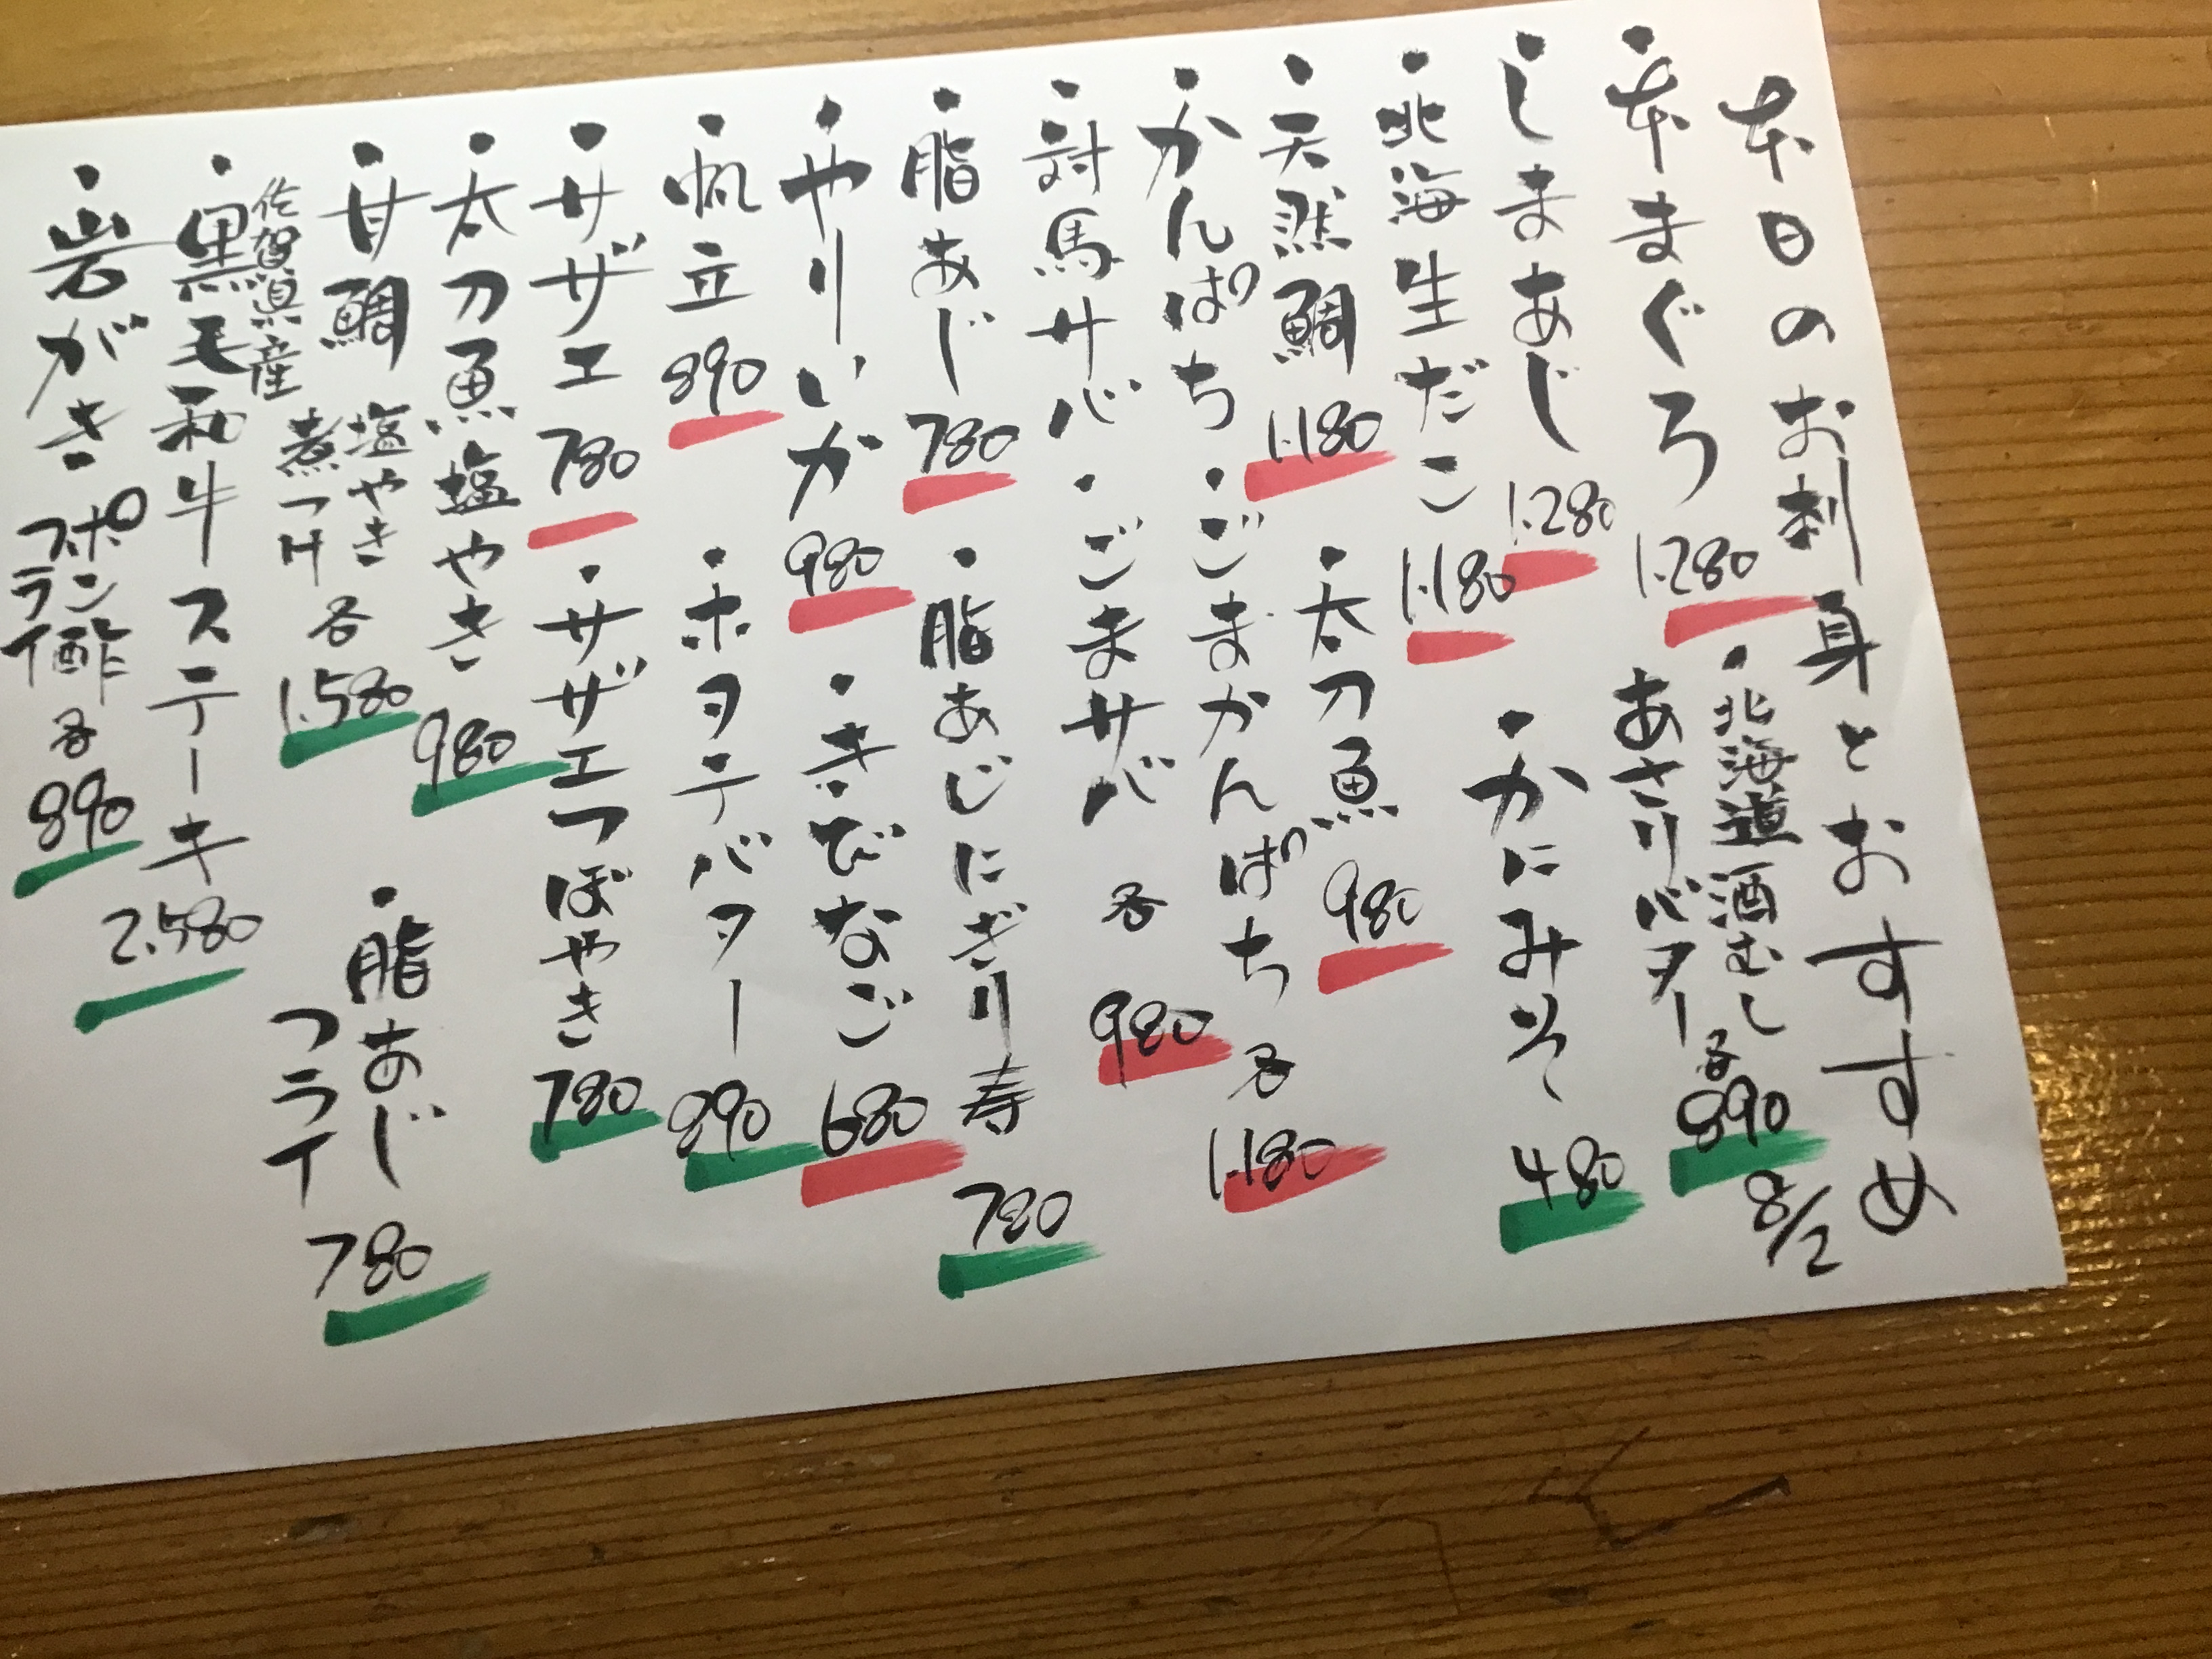 本日のお刺身とおすすめ
8/2
・本まぐろ 1.280
・北海道 酒むし
あさりバター 各890
・しまあじ 1.280
・かにみそ 480
・北海生だこ 1.180
・天然鯛 1.180
・太刀魚 980
・かんぱち・ごまかんぱち 各 1.180
・対馬サバ・ごまサバ 各 980
・脂あじ 780
・脂あじにぎり寿 780
・やりいか 980
・きびなご 680
・帆立 890
・ホタテバター 890
・サザエ 780
・サザエつぼやき 780
・太刀魚塩やき 980
・甘鯛 塩やき
煮つけ 各 1.580
・脂あじ
フライ 780
佐賀県産
・黒毛和牛ステーキ 2.580
・岩がき ポン酢
フライ 各 890